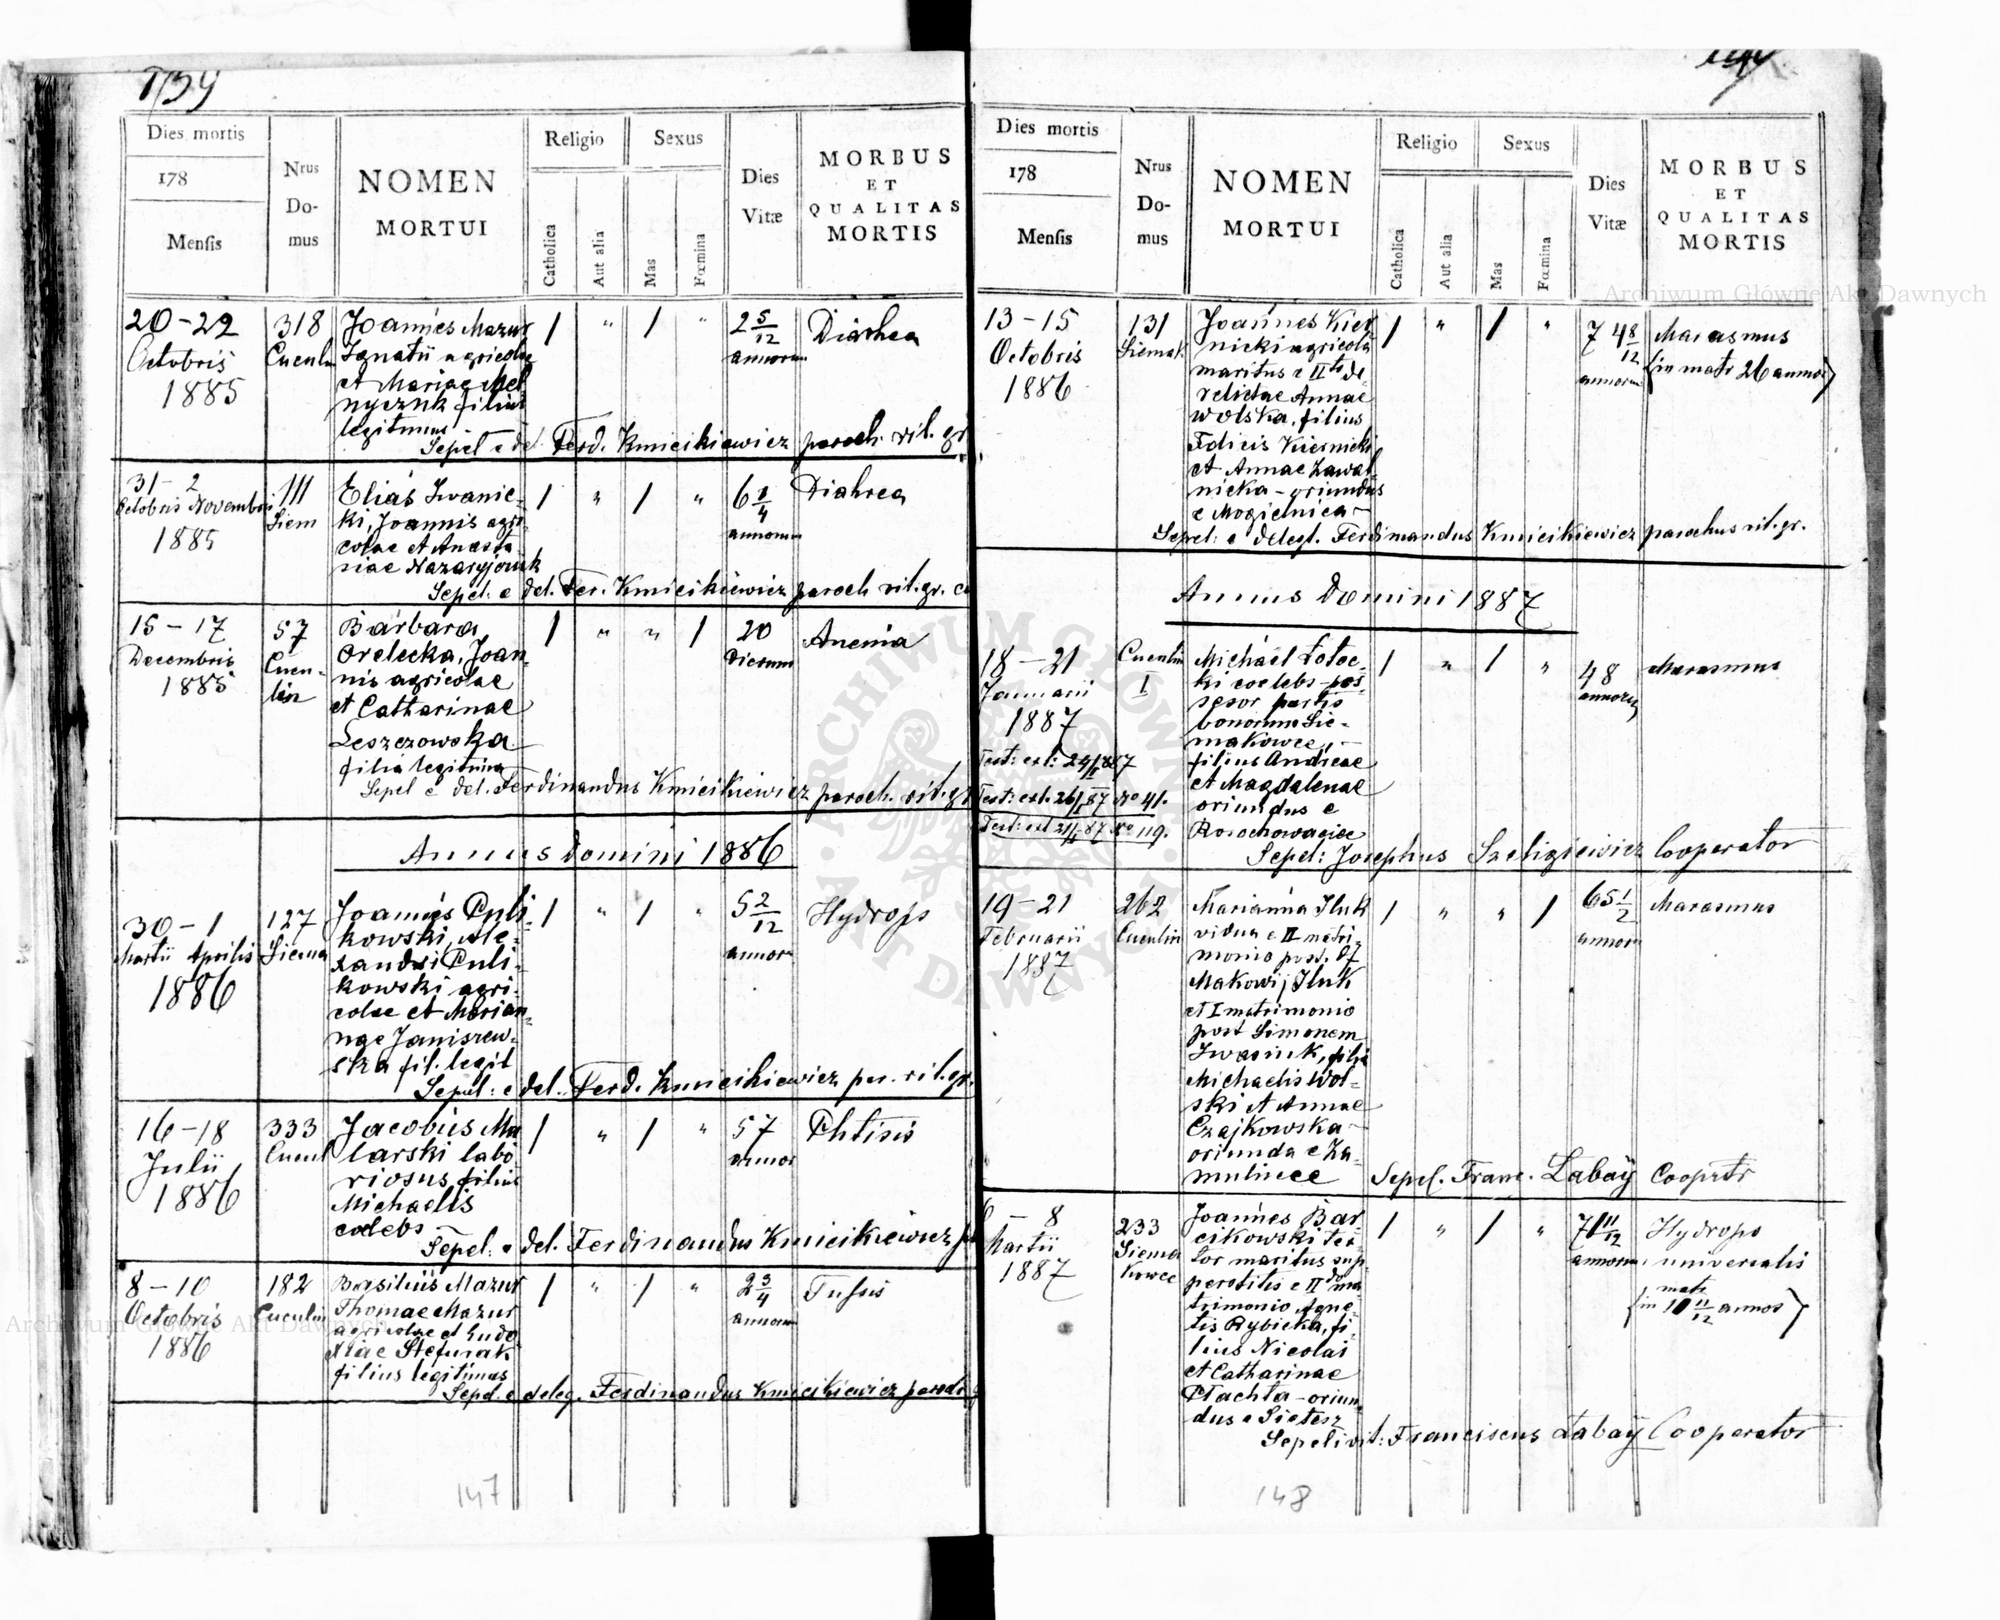 Dies mortis
178
Mensis
Nrus
Do-
mus
NOMEN
MORTUI
Religio
Catholica
Aut alia
Sexus
Mas
Fœmina
Dies
Vitæ
MORBUS
ET
QUALITAS
MORTIS
20-22
Octobris
1885
318
Joannes Mazur
Ignatii agricolae
et Mariae Mel
nyczuk filius
legitimus
1 " 1 "
2 5/12
annorum
Diarhea
Sepel e del. Ferd. Kmicikiewicz paroch. rit. gr
31-2
Octobris Novembris
1885
111
Siem
Elias Iwanic-
ki, Joannis agri-
colae et Anasta-
siae Nazaryjczuk
1 " 1 "
annorum
Diahrea
Sepel: e del. Fer. Kmicikiewicz paroch rit. gr.
15-17
Decembris
1885
57
Cucu-
lin
Barbara
Orelecka, Joan-
nis agricolae
et Catharinae
Leszczowska
filia legitima
1 " " 1
20
dierum
Anemia
Sepel e del. Ferdinandus Kmicikiewicz paroch. rit. gr
Annus Domini 1886
30-1
Martii Aprilis
1886
127
Siema
Joannes Culi-
kowski, Ale-
xandri Culi-
kowski agri-
colae et Marian-
nae Janiszew-
ska fil. legit
1 " 1 "
5 2/12
annor
Hydrops
Sepel: e del. Ferd. Kmicikiewicz par. rit. gr.
16-18
Julii
1886
333
Cucul
Jacobus Ma
larski labo
riosus filius
Michaelis
coelebs
1 " 1 "
57
annor
Phtisis
Sepel: e del. Ferdinandus Kmicikiewicz
8-10
Octobris
1886
182
Cuculin
Basilius Mazur
Thomae Mazur
agricolae et Eudo
xiae Stefurak
filius legitimus
1 " 1 "
2 3/4
annorum
Tussis
Sepel. e deleg. Ferdinandus Kmicikiewicz paroch
147
Dies mortis
178
Mensis
Nrus
Do-
mus
NOMEN
MORTUI
Religio
Catholica
Aut alia
Sexus
Mas
Fœmina
Dies
Vitæ
MORBUS
ET
QUALITAS
MORTIS
13-15
Octobris
1886
131
Siemak
Joannes Kier
nicki agricola
maritus e IIts de-
relictae Annae
Wolska, filius
Felicis Kiernicki
et Annae Zawal
nicka - oriundus
e Mogielnica
1 " 1 "
annorum
Marasmus
(in matr 26 annor)
Sepel: e delegt. Ferdinandus Kmicikiewicz parochus rit. gr.
Annus Domini 1887
18-21
Januarii
1887
Cuculin
I
Michael Łotoc-
ki coelebs pos-
sesor partis
bonorum Sie-
makowce,
filius Andreae
et Magdalenae
oriundus e
Rosochowaciec
1 " 1 "
48
annorum
Marasmus
Test: ext. 26/1 87 No 41.
No 119.
Sepel: Josephus Szeligiewicz Cooperator
19-21
Februarii
1887
262
Cuculin
Marianna Iluk
vidua e II matri-
monio post
Makowij Iluk
et I matrimonio
post Simonem
Iwasiuk, filia
Michaelis Wol-
ski et Annae
Czajkowska
oriunda e Za-
mulince
1 " " 1
65 1/2
annorum
Marasmus
Sepel. Franc. Łabaÿ Cooprtr
- 8
Martii
1887
233
Siema
kowce
Joannes Bar-
cikowski tex-
tor maritus sup-
perstitis e IIdo ma-
trimonio Agne-
tis Rybicka, fi-
lius Nicolai
et Catharinae
Płachta - oriun-
dus e Sietesz
1 " 1 "
71 11/12
annorum
Hydrops
universalis
(in matr 10 11/12 annos)
Sepelivit: Franciscus Łabaÿ Cooperator
148
Archiwum Główne Akt Dawnych